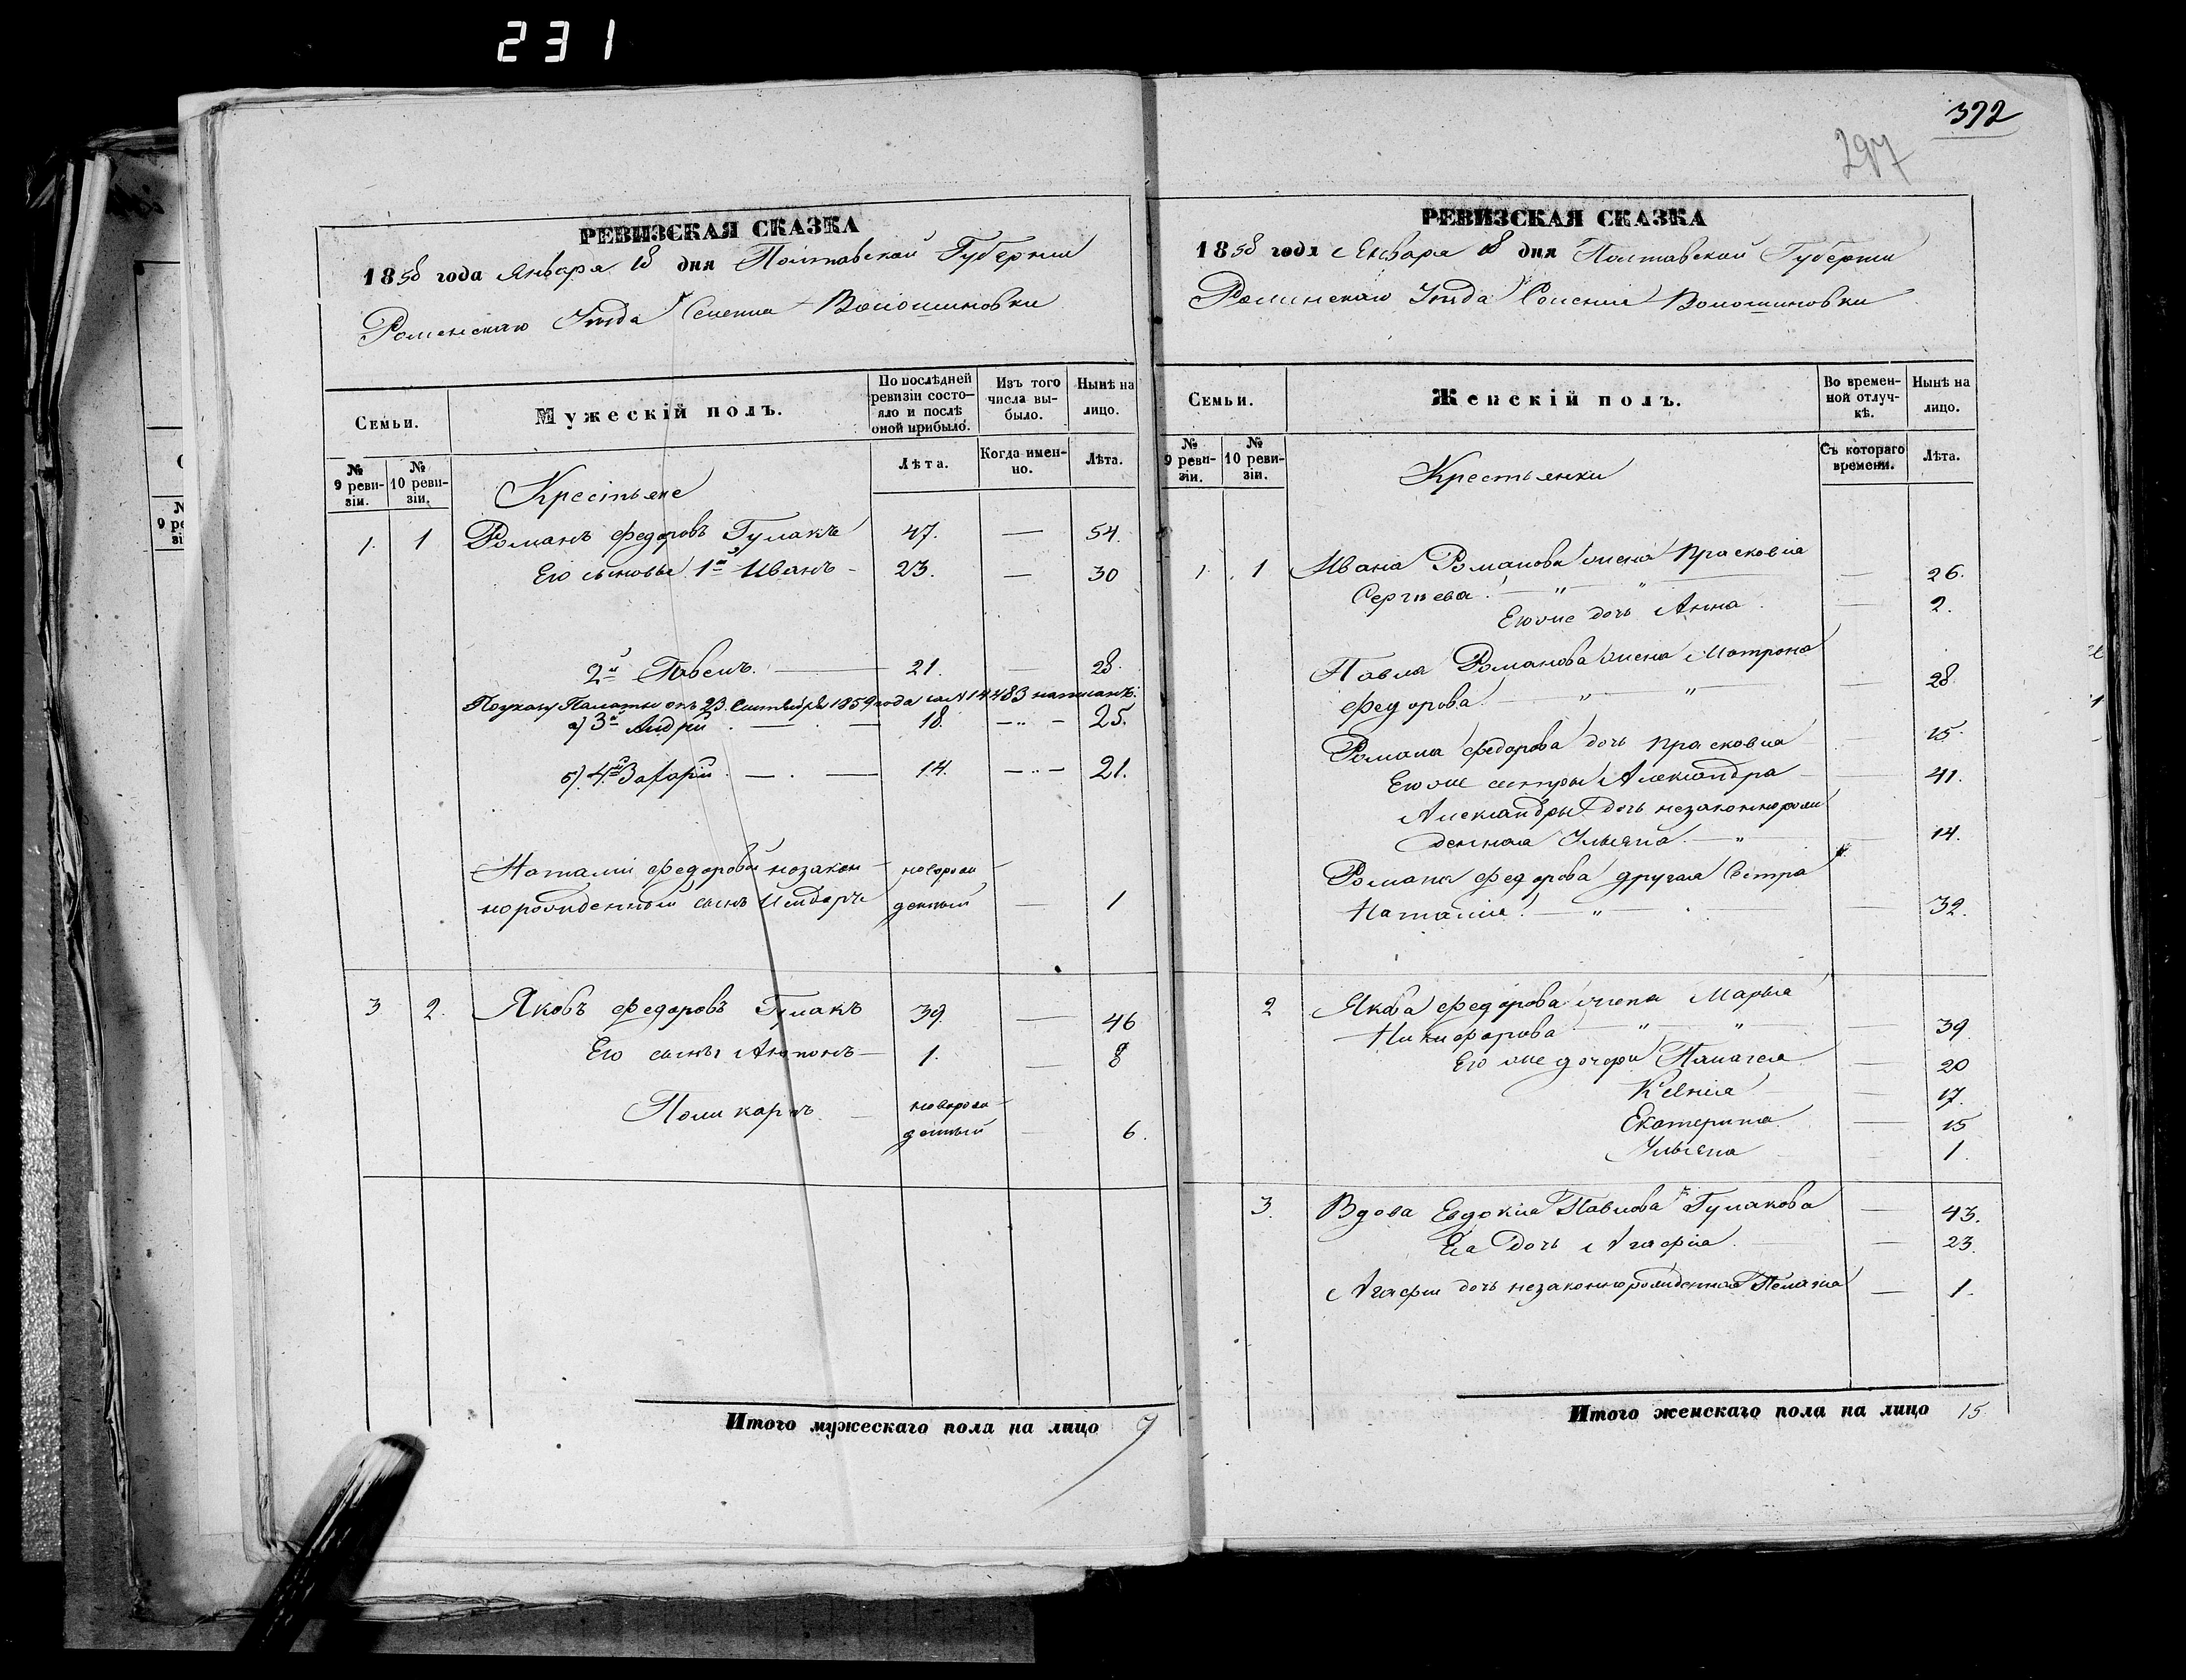 231
РЕВИЗСКАЯ СКАЗКА
1858 года Января 18 дня Полтавской Губернии
Роменскаго Уѣзда Селенiя Волошиновки
Семьи.
Мужескій полъ.
По послѣдней ревизіи состояло и послѣ оной прибыло.
Изъ того числа выбыло.
Нынѣ на лицо.
№ 9 ревизіи.
№ 10 ревизіи.
Лѣта.
Когда именно.
Лѣта.
Крестьяне
1. 1 Романъ Федоровъ Гулакъ 47. — 54.
Его сыновья 1й Иванъ - 23. — 30
2й Павелъ. — 21. — 28.
По указу Палаты отъ 23 Сентября 1859 года за № 14483 написанъ:
а) 3й Андрій 18. — 25.
б) 4й Захарій 14. — 21.
Наталіи Федоровой незакон- новорож-
норожденный сынъ денный — 1
3 2. Яковъ Федоровъ Гулакъ 39. — 46
Его сынъ Антонъ — 1. — 8
Поликарпъ — новорож-
денный — 6.
Итого мужескаго пола на лицо 9
392
297
РЕВИЗСКАЯ СКАЗКА
1858 года Января 18 дня Полтавской Губернии
Роменскаго Уѣзда Селенiя Волошиновки
Семьи.
Женскій полъ.
Во временной отлучкѣ.
Нынѣ на лицо.
№ 9 ревизіи.
№ 10 ревизіи.
Съ котораго времени.
Лѣта.
Крестьянки
1. 1 Ивана Романова жена Прасковiя
Сергѣева. — " — " — 26.
Его же дочь Анна. — 2.
Павла Романова жена Матрона
Федорова. — " — " — 28
Романа Федорова дочь Прасковiя — 15.
Его же сестры Александра — 41.
Александры дочь незаконнорож
денная Ульяна. — " — 14.
Романа Федорова другая Сестра
Наталiя. — " — 32.
2 Якова Федорова жена Марья
Никифорова — " — " — 39
Его же дочери Палагея — 20
Ксенiя — 17.
Екатерина — 15
Ульяна — 1.
3. Вдова Евдокiя Павлова Гулакова — 43.
Ея дочь Агафiя. — 23.
Агафiи дочь незаконнорожденная Пелагiя — 1.
Итого женскаго пола на лицо 15